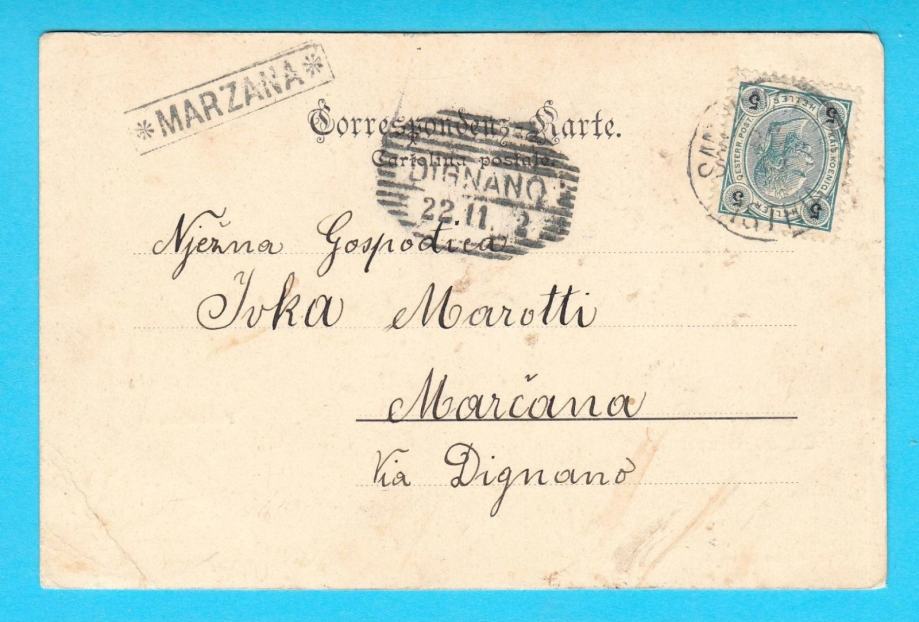 *MARZANA*
Correspondenz-Karte.
Cartolina postale.
DIGNANO
22.11 2
5 HELLER 5
OESTERR. POST
5 HELLER 5
SAN
Nježna Gospođica
Ivka Marotti
Marčana
Via Dignano